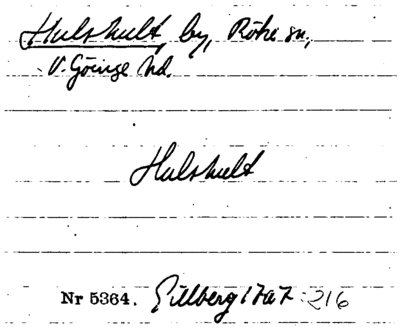 Hulshult, by, Röke sn,
V. Göinge hd.
Hulshult
Nr 5364. Gillberg 1767: 216